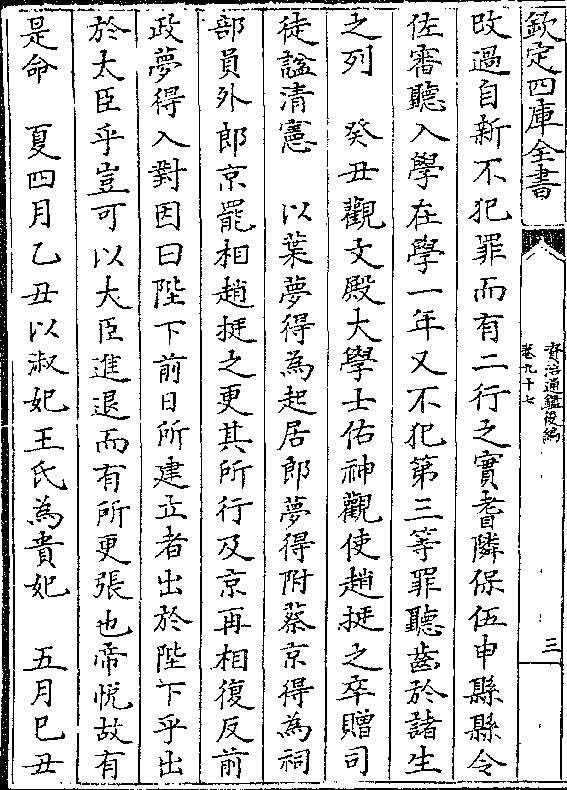 欽定四庫全書
資治通鑑後編
卷九十七
三
改過自新不犯罪而有二行之實耆隣保伍申縣縣令
佐審聽入學在學一年又不犯第三等罪聽齒於諸生
之列　癸丑觀文殿大學士佑神觀使趙挺之卒贈司
徒諡清憲　以葉夢得為起居郎夢得附蔡京得為祠
部員外郎京罷相趙挺之更其所行及京再相復反前
政夢得入對因曰陛下前日所建立者出於陛下乎出
於大臣乎豈可以大臣進退而有所更張也帝悅故有
是命　夏四月乙丑以淑妃王氏為貴妃　五月巳丑